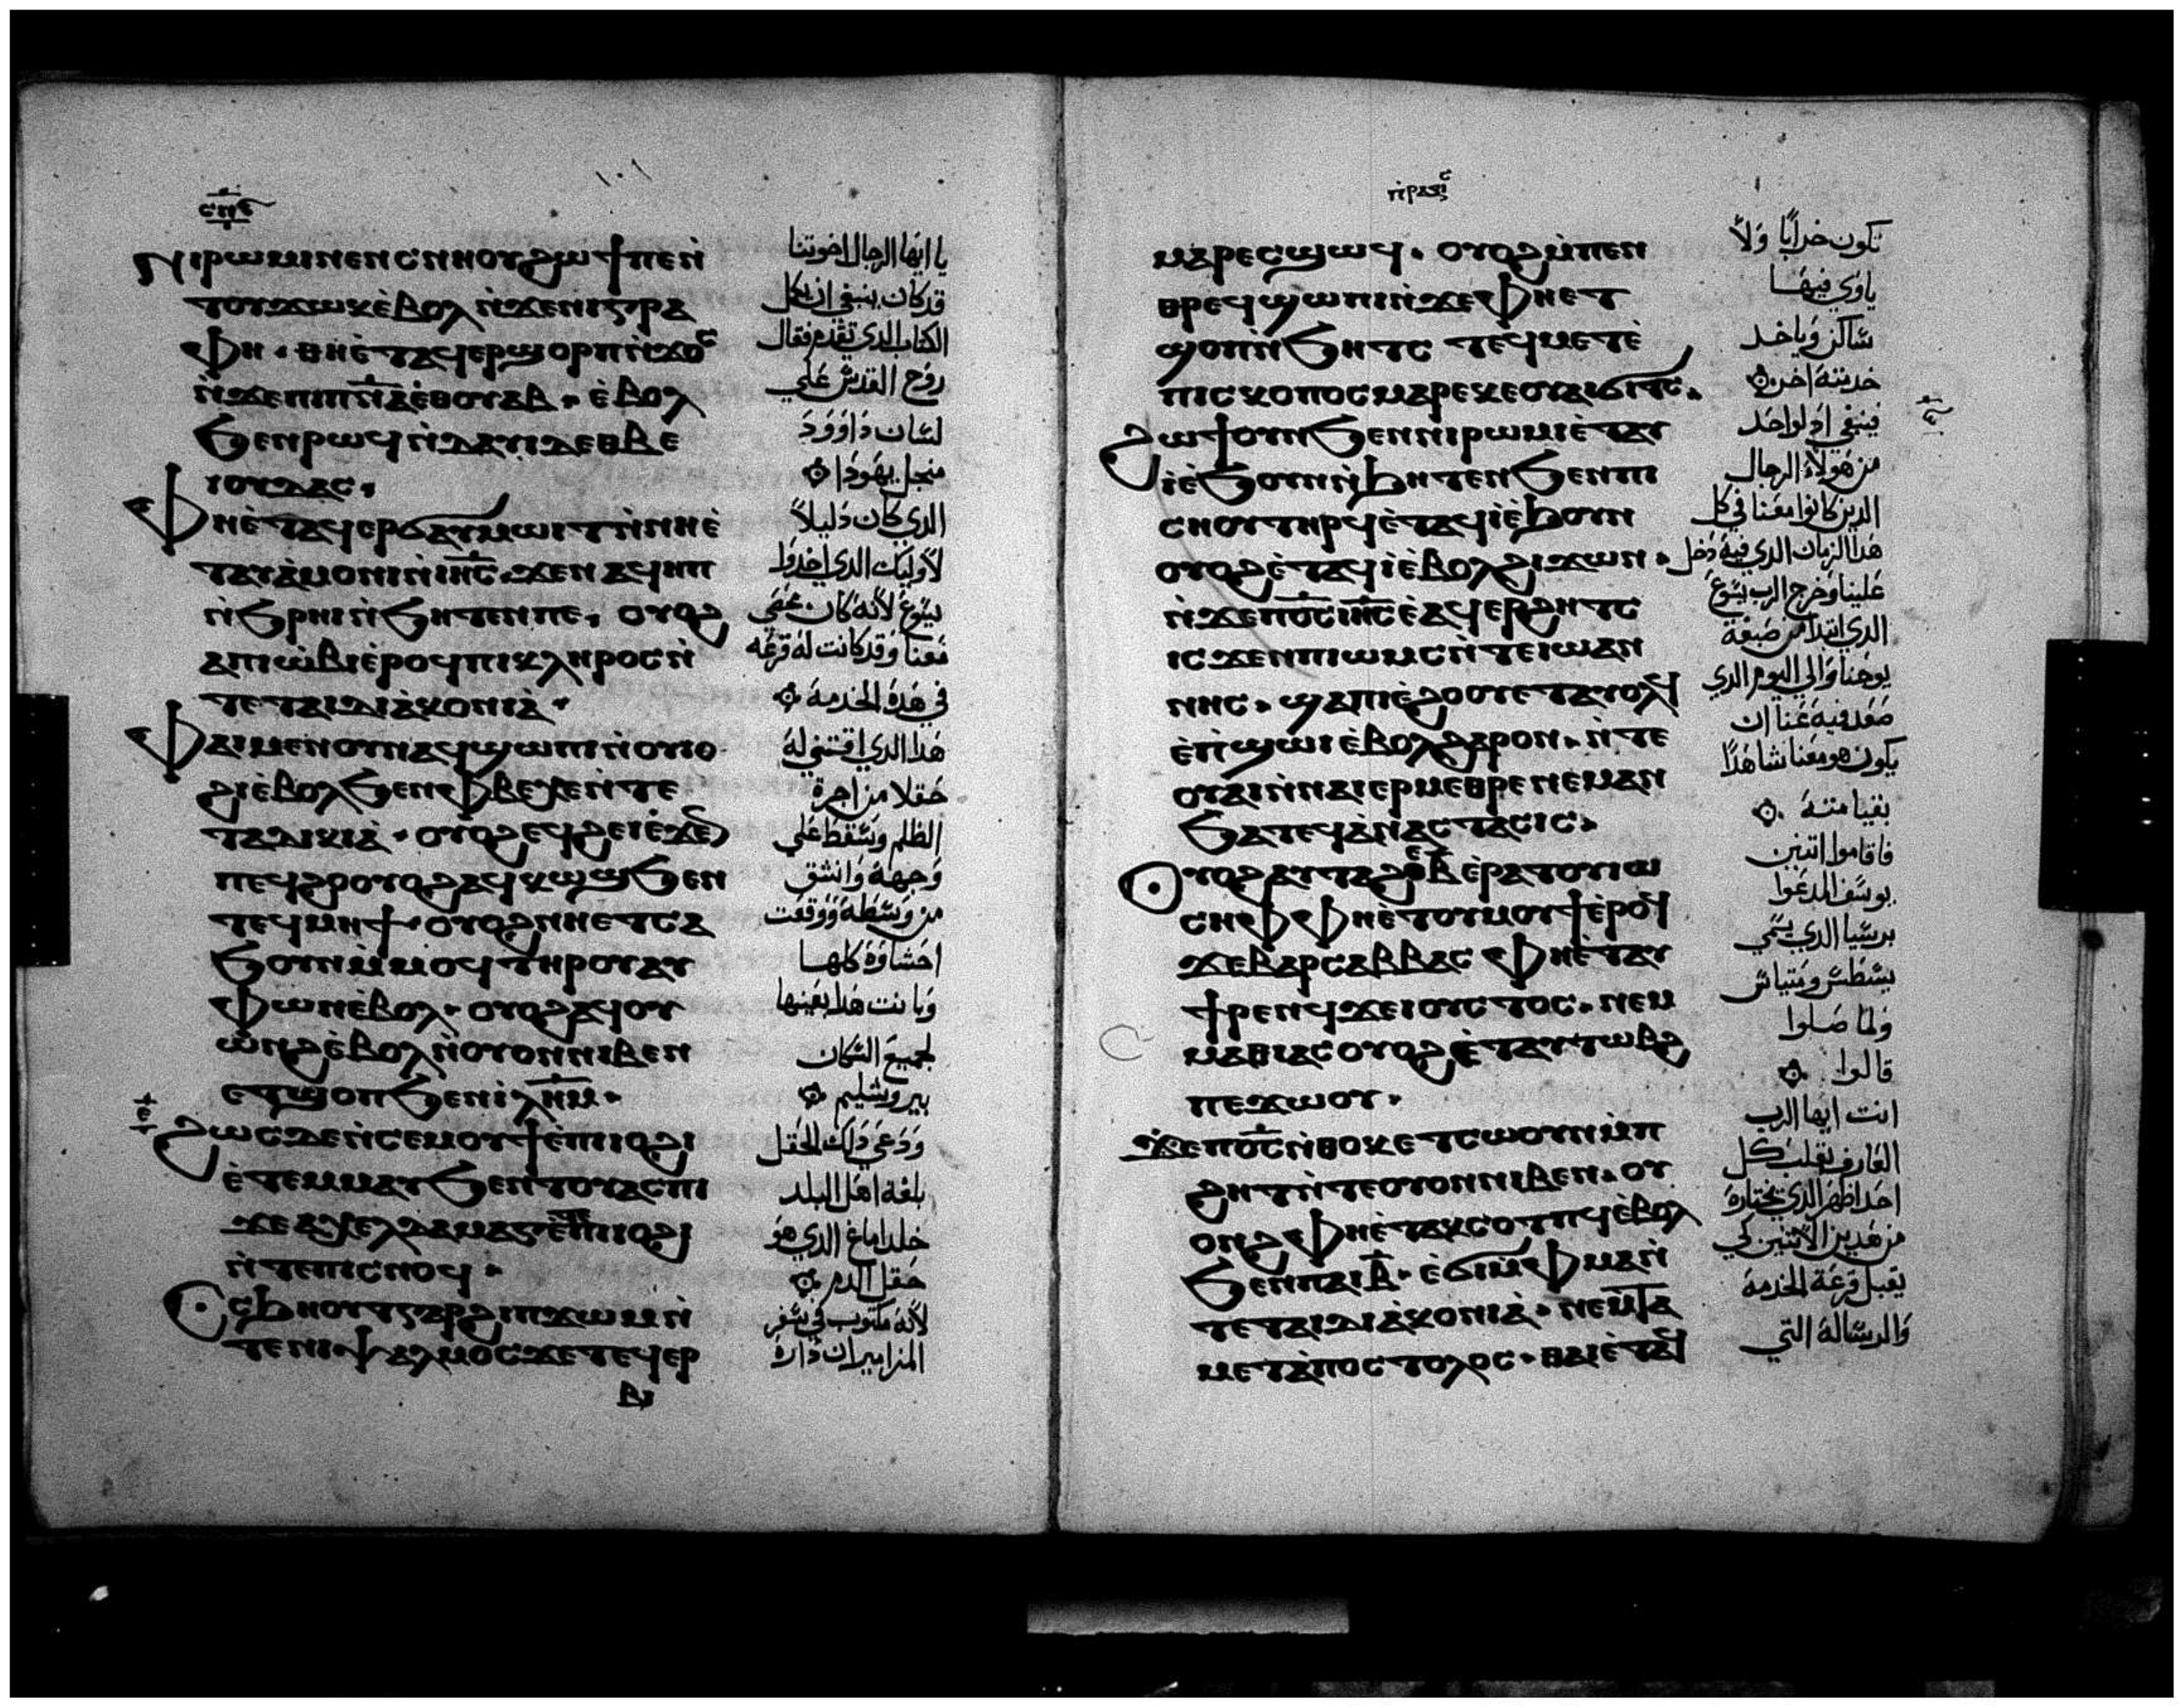 ⲥⲡⲋ
١٠١
ⲛⲓⲣⲱⲙⲓ ⲛⲉⲛⲥⲛⲏⲟⲩ ϩⲱϯ ⲡⲉ ⲛ̀
ⲧⲟⲩϫⲱⲕ ⲉ̀ⲃⲟⲗ ⲛ̀ϫⲉ ⲛⲓⲅⲣⲁ
ⲫⲏ · ⲑⲏ ⲉ̀ⲧⲁϥⲉⲣϣⲟⲣⲡ ⲛ̀ϫⲟⲥ
ⲛ̀ϫⲉ ⲡⲓⲡⲛⲁ̅ ⲉ̀ⲑⲟⲩⲁⲃ · ⲉ̀ⲃⲟⲗ
ϧⲉⲛ ⲣⲱϥ ⲛ̀ⲇⲁⲩⲓⲇ ⲉⲑⲃⲉ
ⲓⲟⲩⲇⲁⲥ ·
ⲫⲏ ⲉ̀ⲧⲁϥⲉⲣϭⲁⲩⲙⲱⲓⲧ ⲛ̀ⲛⲏ ⲉ̀
ⲧⲁⲩⲁ̀ⲙⲟⲛⲓ ⲛ̀ⲓⲏⲥ̅ · ϫⲉ ⲛⲁϥⲏⲡ
ⲛ̀ϧⲣⲏⲓ ⲛ̀ϧⲏⲧⲉⲛ ⲡⲉ · ⲟⲩⲟϩ
ⲁⲡⲓⲱ̀ⲃⲓ ⲉ̀ⲣⲟϥ ⲡⲓⲕⲗⲏⲣⲟⲥ ⲛ̀
ⲧⲉ ⲧⲁⲓⲇⲓⲁ̀ⲕⲟⲛⲓⲁ̀ ·
ⲫⲁⲓ ⲙⲉⲛ ⲟⲩⲛ ⲁϥϣⲱⲡⲓ ⲛ̀ⲟⲩⲓⲟ
ϩⲓ ⲉ̀ⲃⲟⲗ ϧⲉⲛ ⲫⲃⲉⲭⲉ ⲛ̀ⲧⲉ
ⲧⲁⲇⲓⲕⲓⲁ̀ · ⲟⲩⲟϩ ⲉϥϩⲉⲓ ⲉ̀ϫⲉⲛ
ⲡⲉϥϩⲟ ⲟⲩⲟϩ ⲁϥⲕⲱϣ ϧⲉⲛ
ⲧⲉϥⲙⲏϯ · ⲟⲩⲟϩ ⲛⲏ ⲉⲧⲥⲁ
ϧⲟⲩⲛ ⲙ̀ⲙⲟϥ ⲧⲏⲣⲟⲩ ⲁⲩ
ⲫⲱⲛ ⲉ̀ⲃⲟⲗ · ⲟⲩⲟϩ ⲁϥⲟⲩ
ⲱ̀ⲛϩ ⲉ̀ⲃⲟⲗ ⲛ̀ⲟⲩⲟⲛ ⲛⲓⲃⲉⲛ
ⲉⲧϣⲟⲡ ϧⲉⲛ ⲓ̀ⲗⲏⲙ̅ ·
ϩⲱⲥⲇⲉ ⲛ̀ⲥⲉⲙⲟⲩϯ ⲉ̀ⲡⲓⲓⲟϩⲓ
ⲉ̀ⲧⲉⲙⲙⲁⲩ ϧⲉⲛ ⲧⲟⲩⲁⲥⲡⲓ
ϫⲉ ⲁⲭⲉⲗⲇⲁⲙⲁⲅ ⲉ̀ⲧⲉ ⲡⲓⲓⲟϩⲓ
ⲛ̀ⲧⲉ ⲡⲓⲥⲛⲟϥ ·
ⲟⲥϧⲏⲟⲩⲧ ⲅⲁⲣ ϩⲓ ⲡϫⲱⲙ ⲛ̀
ⲧⲉ ⲛⲓⲯⲁⲗⲙⲟⲥ ϫⲉ ⲧⲉϥⲉⲣ
يا ايها الرجال اخوتنا
قد كان ينبغي ان يكمل
الكتاب الذي تقدم فقال
روح القدس علي
لسان داوود
من اجل يهودا
الذي كان دليلاً
لاوليك الذي اخدوا
يسوع لانه كان محصي
معنا وقد كانت له قرعه
في هذة الخدمة
هذا الذي اقتني له
حقلا من اجرة
الظلم وسقط علي
وجهه وانشق
من وسطه ووقعت
احشاوة كلها
وبانت هذا بعينها
لجميع السكان
بيروشليم
ودعي داك الحقل
بلغة اهل البلد
خلداماغ الذي هو
حقل الدم
لانه مكتوب في سفر
المزامير ان دارة
ⲡⲣⲁⲝⲓⲥ
ⲙⲁⲣⲉⲥϣⲱϥ · ⲟⲩⲟϩ ⲙ̀ⲡⲉⲛ
ⲑⲣⲉϥϣⲱⲡⲓ ⲛ̀ϫⲉ ⲫⲏ ⲉⲧ
ϣⲟⲡ ⲛ̀ϧⲏⲧⲥ ⲧⲉϥⲙⲉⲧⲉ̀
ⲡⲓⲥⲕⲟⲡⲟⲥ ⲙⲁⲣⲉ ⲕⲉⲟⲩⲁⲓ ϭⲓⲧⲥ ·
ϩⲱϯ ⲟⲩⲛ ϧⲉⲛ ⲛⲓⲣⲱⲙⲓ ⲉ̀ⲧⲁⲩ
ⲓ̀ ⲉ̀ϧⲟⲩⲛ ⲛ̀ϧⲏⲧⲉⲛ ϧⲉⲛ ⲡⲓ
ⲥⲏⲟⲩ ⲧⲏⲣϥ ⲉ̀ⲧⲁϥⲓ̀ ⲉ̀ϧⲟⲩⲛ
ⲟⲩⲟϩ ⲉ̀ⲧⲁϥⲓ̀ ⲉ̀ⲃⲟⲗ ϩⲓϫⲱⲛ ·
ⲛ̀ϫⲉ ⲡⲟ̅ⲥ̅ ⲓⲏⲥ̅ ⲉ̀ⲁϥⲉⲣϩⲏⲧⲥ
ⲓⲥϫⲉⲛ ⲡⲓⲱⲙⲥ ⲛ̀ⲧⲉ ⲓⲱⲁⲛ
ⲛⲏⲥ · ϣⲁ ⲡⲓⲉ̀ϩⲟⲟⲩ ⲉⲧⲁⲩⲟⲗϥ
ⲉ̀ⲡ̀ϣⲱⲓ ⲉ̀ⲃⲟⲗ ϩⲁⲣⲟⲛ · ⲛ̀ⲧⲉ
ⲟⲩⲁⲓ ⲛ̀ⲛⲁⲓ ⲉⲣⲙⲉⲑⲣⲉ ⲛⲉⲙⲁⲛ
ϧⲁ ⲧⲉϥⲁ̀ⲛⲁⲥⲧⲁⲥⲓⲥ ·
ⲟⲩⲟϩ ⲁⲩⲧⲁϩⲟ ⲃ̅ ⲉ̀ⲣⲁⲧⲟⲩ ⲓⲱ
ⲥⲏⲫ ⲫⲏ ⲉ̀ⲧⲟⲩⲙⲟⲩϯ ⲉ̀ⲣⲟϥ
ϫⲉ ⲃⲁⲣⲥⲁⲃⲃⲁⲥ ⲫⲏ ⲉ̀ⲧⲁⲩ
ϯⲣⲉⲛϥ ϫⲉ ⲓⲟⲩⲥⲧⲟⲥ · ⲛⲉⲙ
ⲙⲁⲑⲓⲁⲥ ⲟⲩⲟϩ ⲉ̀ⲧⲁⲩⲧⲱⲃϩ
ⲡⲉϫⲱⲟⲩ ·
ϫⲉ ⲡⲟ̅ⲥ̅ ⲛ̀ⲑⲟⲕ ⲉⲧⲥⲱⲟⲩⲛ ⲙ̀ⲡ
ϩⲏⲧ ⲛ̀ⲧⲉ ⲟⲩⲟⲛ ⲛⲓⲃⲉⲛ · ⲟⲩ
ⲟⲛϩ ⲫⲏ ⲉ̀ⲧⲁⲕⲥⲟⲧⲡϥ ⲉ̀ⲃⲟⲗ
ϧⲉⲛ ⲡⲁⲓ ⲃ̅ · ⲉ̀ϭⲓ ⲙ̀ⲫⲙⲁ ⲛ̀
ⲧⲉ ⲧⲁⲓⲇⲓⲁ̀ⲕⲟⲛⲓⲁ̀ · ⲛⲉⲙ ⲧⲁ
ⲙⲉⲧⲁ̀ⲡⲟⲥⲧⲟⲗⲟⲥ · ⲑⲁⲓ ⲉ̀ⲧⲁϥ
تكون خرابًا ولا
ياوي فيها
ساكن وياخد
خدمته اخر
فينبغي اذ لواحد
من هولاء الرجال
الذين كانوا معنا في كل
هذا الزمان الذي فيه دخل
علينا وخرج الرب يسوع
الذي ابتدا من صبغة
يوحنا والي اليوم الذي
صعد فيه عنا ان
يكون هو معنا شاهدًا
بقيامته
فاقاموا اتنين
يوسف المدعوا
برسبا الذي يسمي
يسطس ومتياس
ولما صلوا
قالوا
انت ايها الرب
العارف بقلب كل
احد اظهر الذي تختارة
من هدين الاتنين لكي
يقبل قرعة الخدمة
والرسالة التي